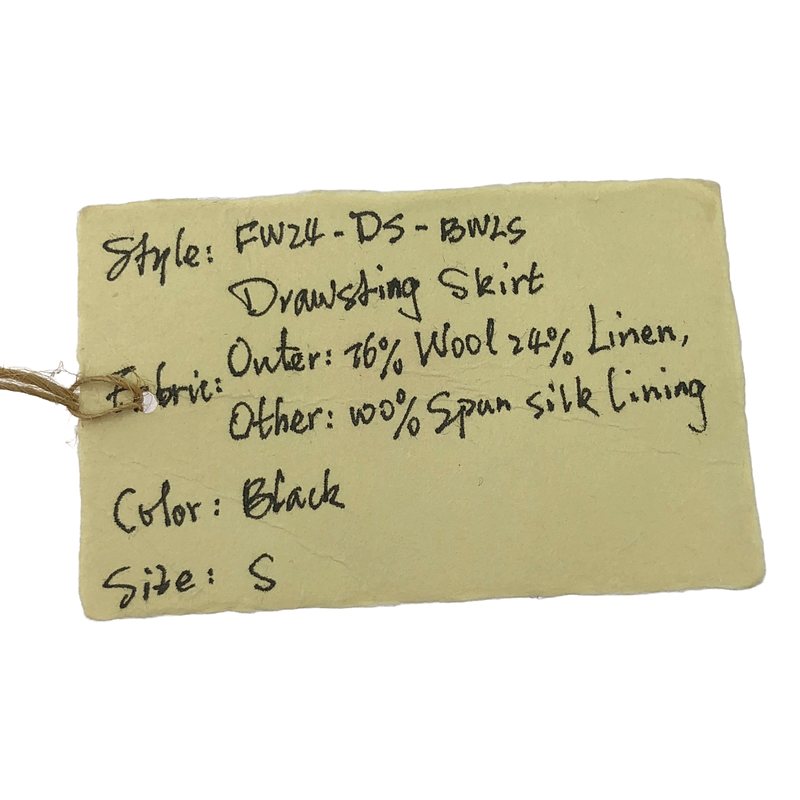 Style: FW24-DS-BWLS
Drawsting Skirt
Fabric: Outer: 76% Wool 24% Linen,
Other: 100% Spun silk lining
Color: Black
Size: S